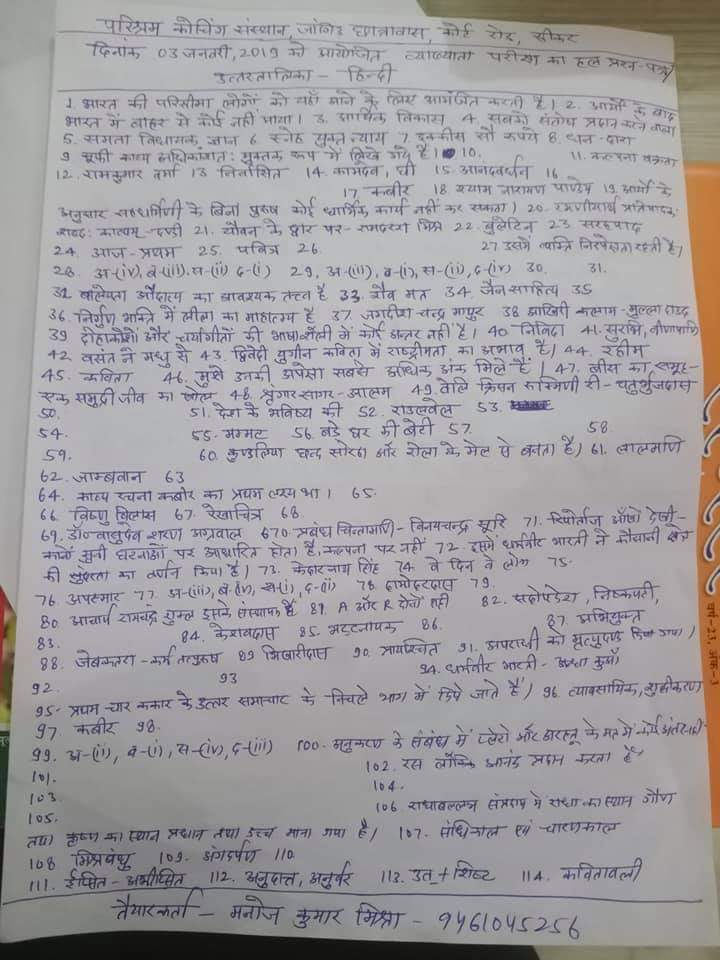 परिश्रम कोचिंग संस्थान, जांगिड छात्रावास, कोर्ट रोड, सीकर
दिनांक 03 जनवरी, 2019 को आयोजित व्याख्याता परीक्षा का हल प्रश्न-पत्र
उत्तरतालिका - हिन्दी
1 भारत की परिसीमा लोगों को यहाँ आने के लिए आमंत्रित करती है। 2. आर्यों के बाद
भारत में बाहर से कोई नहीं आया। 3. आर्थिक विकास 4. सबको संतोष प्रदान करने वाला
5. समता विधायक ज्ञान 6. स्नेह युक्त न्याय 7. इक्कीस सौ रुपये 8. धन-दारा
9 सूफी काव्य अधिकांशतः मुक्तक रूप में लिखे गये हैं। 10. 11. कल्पना वक्रता
12. रामकुमार वर्मा 13 निर्वासित 14. कामदेव, घी 15. आनंदवर्धन 16.
17. कबीर 18 श्याम नारायण पाण्डेय 19. आर्यों के
अनुसार सहधर्मिणी के बिना पुरुष कोई धार्मिक कार्य नहीं कर सकता। 20. रमणीयार्थ प्रतिपादकः
शब्दः काव्यम्-दण्डी 21. यौवन के द्वार पर - रामदरश मिश्र 22. बुलेटिन 23. सरहपाद
24. आज-प्रथम 25. पवित्र 26. 27 उसमें व्यक्ति निरपेक्षता रहती है।
28. अ-(iv), ब-(iii), स-(ii) द-(i) 29. अ-(iii), ब-(i), स-(ii), द-(iv) 30. 31.
32 बालेयता औदात्य का आवश्यक तत्व है 33. शैव मत 34. जैन साहित्य 35
36. निर्गुण भक्ति में लीला का माहात्म्य है 37. जगदीश चन्द्र माथुर 38 आखिरी कलाम - मुल्ला दाउद
39 दोहाकोशों और चर्यागीतों की भाषाशैली में कोई अन्तर नहीं है। 40 निविदा 41. सुरभि, वीणापाणि
42 वसंत ने मधु से 43. द्विवेदी युगीन कविता में राष्ट्रीयता का अभाव है। 44. रहीम
45. कविता 46. मुझे उनकी अपेक्षा सबसे अधिक अंक मिले हैं। 47. सीस का, समूह-
एक समुद्री जीव का खोल 48. श्रृंगार सागर-आलम 49 वेलि क्रिसन रुकमिणी री - चतुर्भुजदास
50. 51. देश के भविष्य की 52. राउलवेल 53.
54. 55. मम्मट 56. बड़े घर की बेटी 57. 58
59. 60. कुण्डलिया छन्द सोरठा और रोला के मेल से बनता है। 61. लालमणि
62. जाम्बवान 63
64. काव्य रचना कबीर का प्रथम लक्ष्य था। 65.
66. विष्णु विलास 67. रेखाचित्र 68.
69. डॉ वासुदेव शरण अग्रवाल 670. प्रबंध चिन्तामणि - विनयचन्द्र सूरि 71. रिपोर्ताज आँखों देखी-
कानों सुनी घटनाओं पर आधारित होता है, कल्पना पर नहीं 72. इसमें धर्मवीर भारती ने कौसानी क्षेत्र
की सुंदरता का वर्णन किया है। 73. केदारनाथ सिंह 74. वे दिन वे लोग 75.
76. अपस्मार 77. अ-(iii), ब-(iv), स-(i), द-(ii) 78. दामोदरदास 79.
80. आचार्य रामचंद्र शुक्ल इसके संस्थापक हैं 81. A और R दोनों सही 82. सदोपदेश, निष्कपटी,
83. 84. केशवदास 85. भट्टनायक 86. 87. अभियुक्त
88. जेबकतरा - कर्म तत्पुरुष 89 भिखारीदास 90. प्रायश्चित 91. अपराधी को मृत्युदण्ड दिया गया।
92. 93 94. धर्मवीर भारती - अन्धा कुआँ
95- प्रथम चार ककार के उत्तर समाचार के निचले भाग में दिये जाते हैं। 96. व्यावसायिक, शुद्धीकरण
97 कबीर 98.
99. अ-(ii), ब-(i), स-(iv), द-(iii) 100. अनुकरण के संबंध में प्लेटो और अरस्तू के मत में कोई अंतर नहीं-
101. 102. रस लौकिक आनंद प्रदान करता है
103 104.
105. 106 राधावल्लभ संप्रदाय में राधा का स्थान गौण
तथा कृष्ण का स्थान प्रधान तथा उच्च माना गया है। 107. संधिकाल एवं चारणकाल
108 मिश्रबंधु 109. अंगदर्पण 110
111. ईप्सित - अभीप्सित 112. अनुदात्त, अनुर्वर 113. उत् + शिष्ट 114. कवितावली
तैयारकर्ता - मनोज कुमार मिश्रा - 9461045256